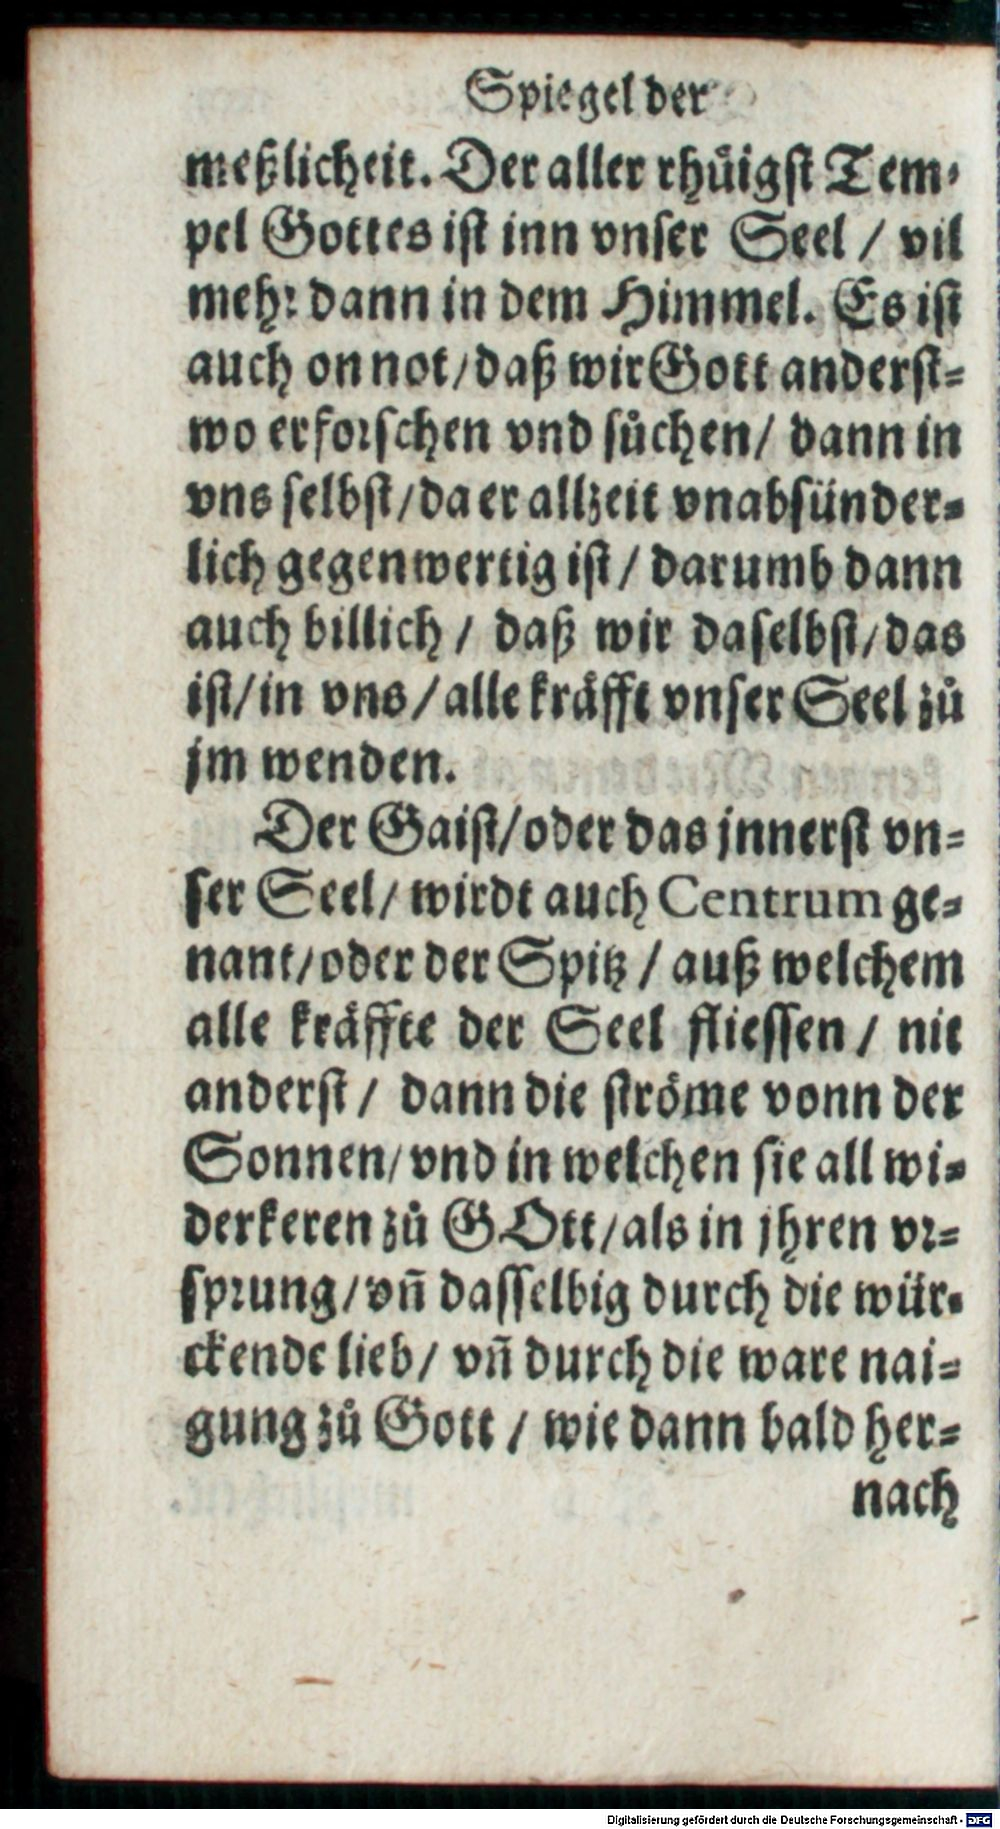 Spiegel der
meßlicheit. Der aller rhuͤigst Tem-
pel Gottes ist inn vnser Seel / vil
mehr dann in dem Himmel. Es ist
auch on not / daß wir Gott anderst-
wo erforschen vnd suͦchen / dann in
vns selbst / da er allzeit vnabsünder-
lich gegenwertig ist / darumb dann
auch billich / daß wir daselbst / das
ist / in vns / alle kräfft vnser Seel zuͦ
jm wenden.
Der Gaist / oder das jnnerst vn-
ser Seel / wirdt auch Centrum ge-
nant / oder der Spitz / auß welchem
alle kräffte der Seel fliessen / nit
anderst / dann die ströme vonn der
Sonnen / vnd in welchen sie all wi-
derkeren zuͦ GOtt / als in jhren vr-
sprung / vn̄ dasselbig durch die wür-
ckende lieb / vn̄ durch die ware nai-
gung zuͦ Gott / wie dann bald her-
nach
Digitalisierung gefördert durch die Deutsche Forschungsgemeinschaft - DFG